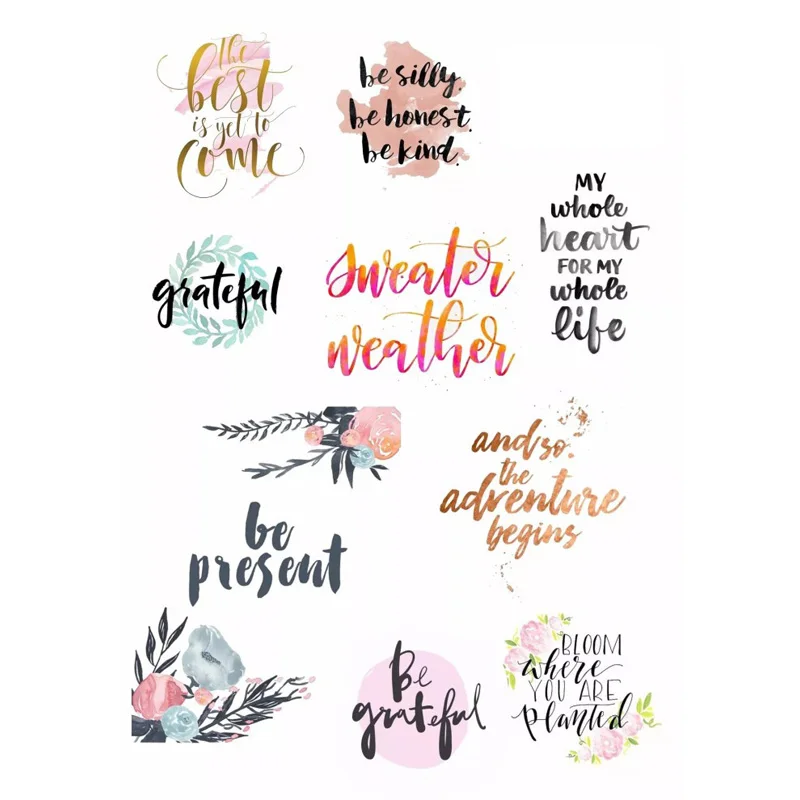 the
best
is yet to
come
be silly.
be honest.
be kind.
MY
whole
heart
FOR MY
whole
life
grateful
sweater
weather
and so.
the
adventure
begins
be
present
Be
grateful
BLOOM
where
YOU ARE
planted